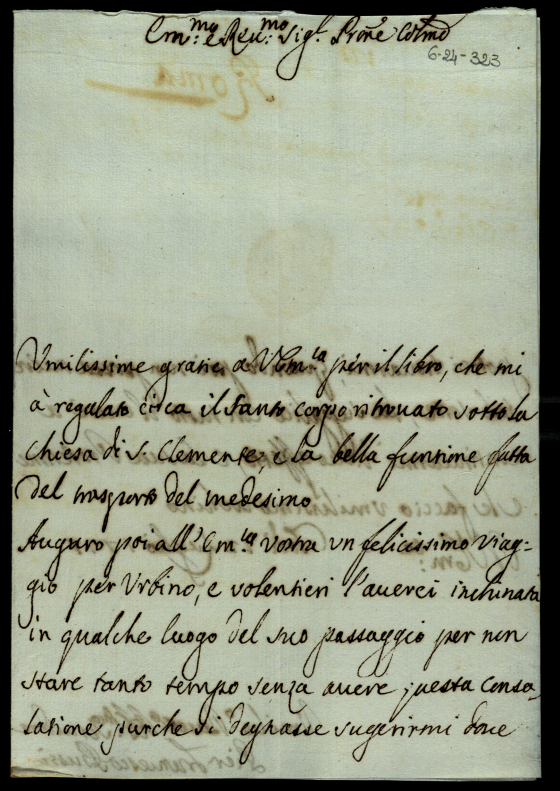 Em:mo e Reu:mo Sig.r Prone Colmo
6-24-323
Roma
Vmilissime gratie a VEm:za per il libro, che mi
à regalato circa il Santo corpo ritrouato sotto la
Chiesa di S. Clemente, e la bella funtione fatta
del trasporto del medesimo
Auguro poi all'Em:za vostra vn felicissimo viag=
gio per Vrbino, e volentieri l'auerei inchinata
in qualche luogo del suo passaggio per non
stare tanto tempo senza auere questa conso
latione purche si degnasse sugerirmi doue